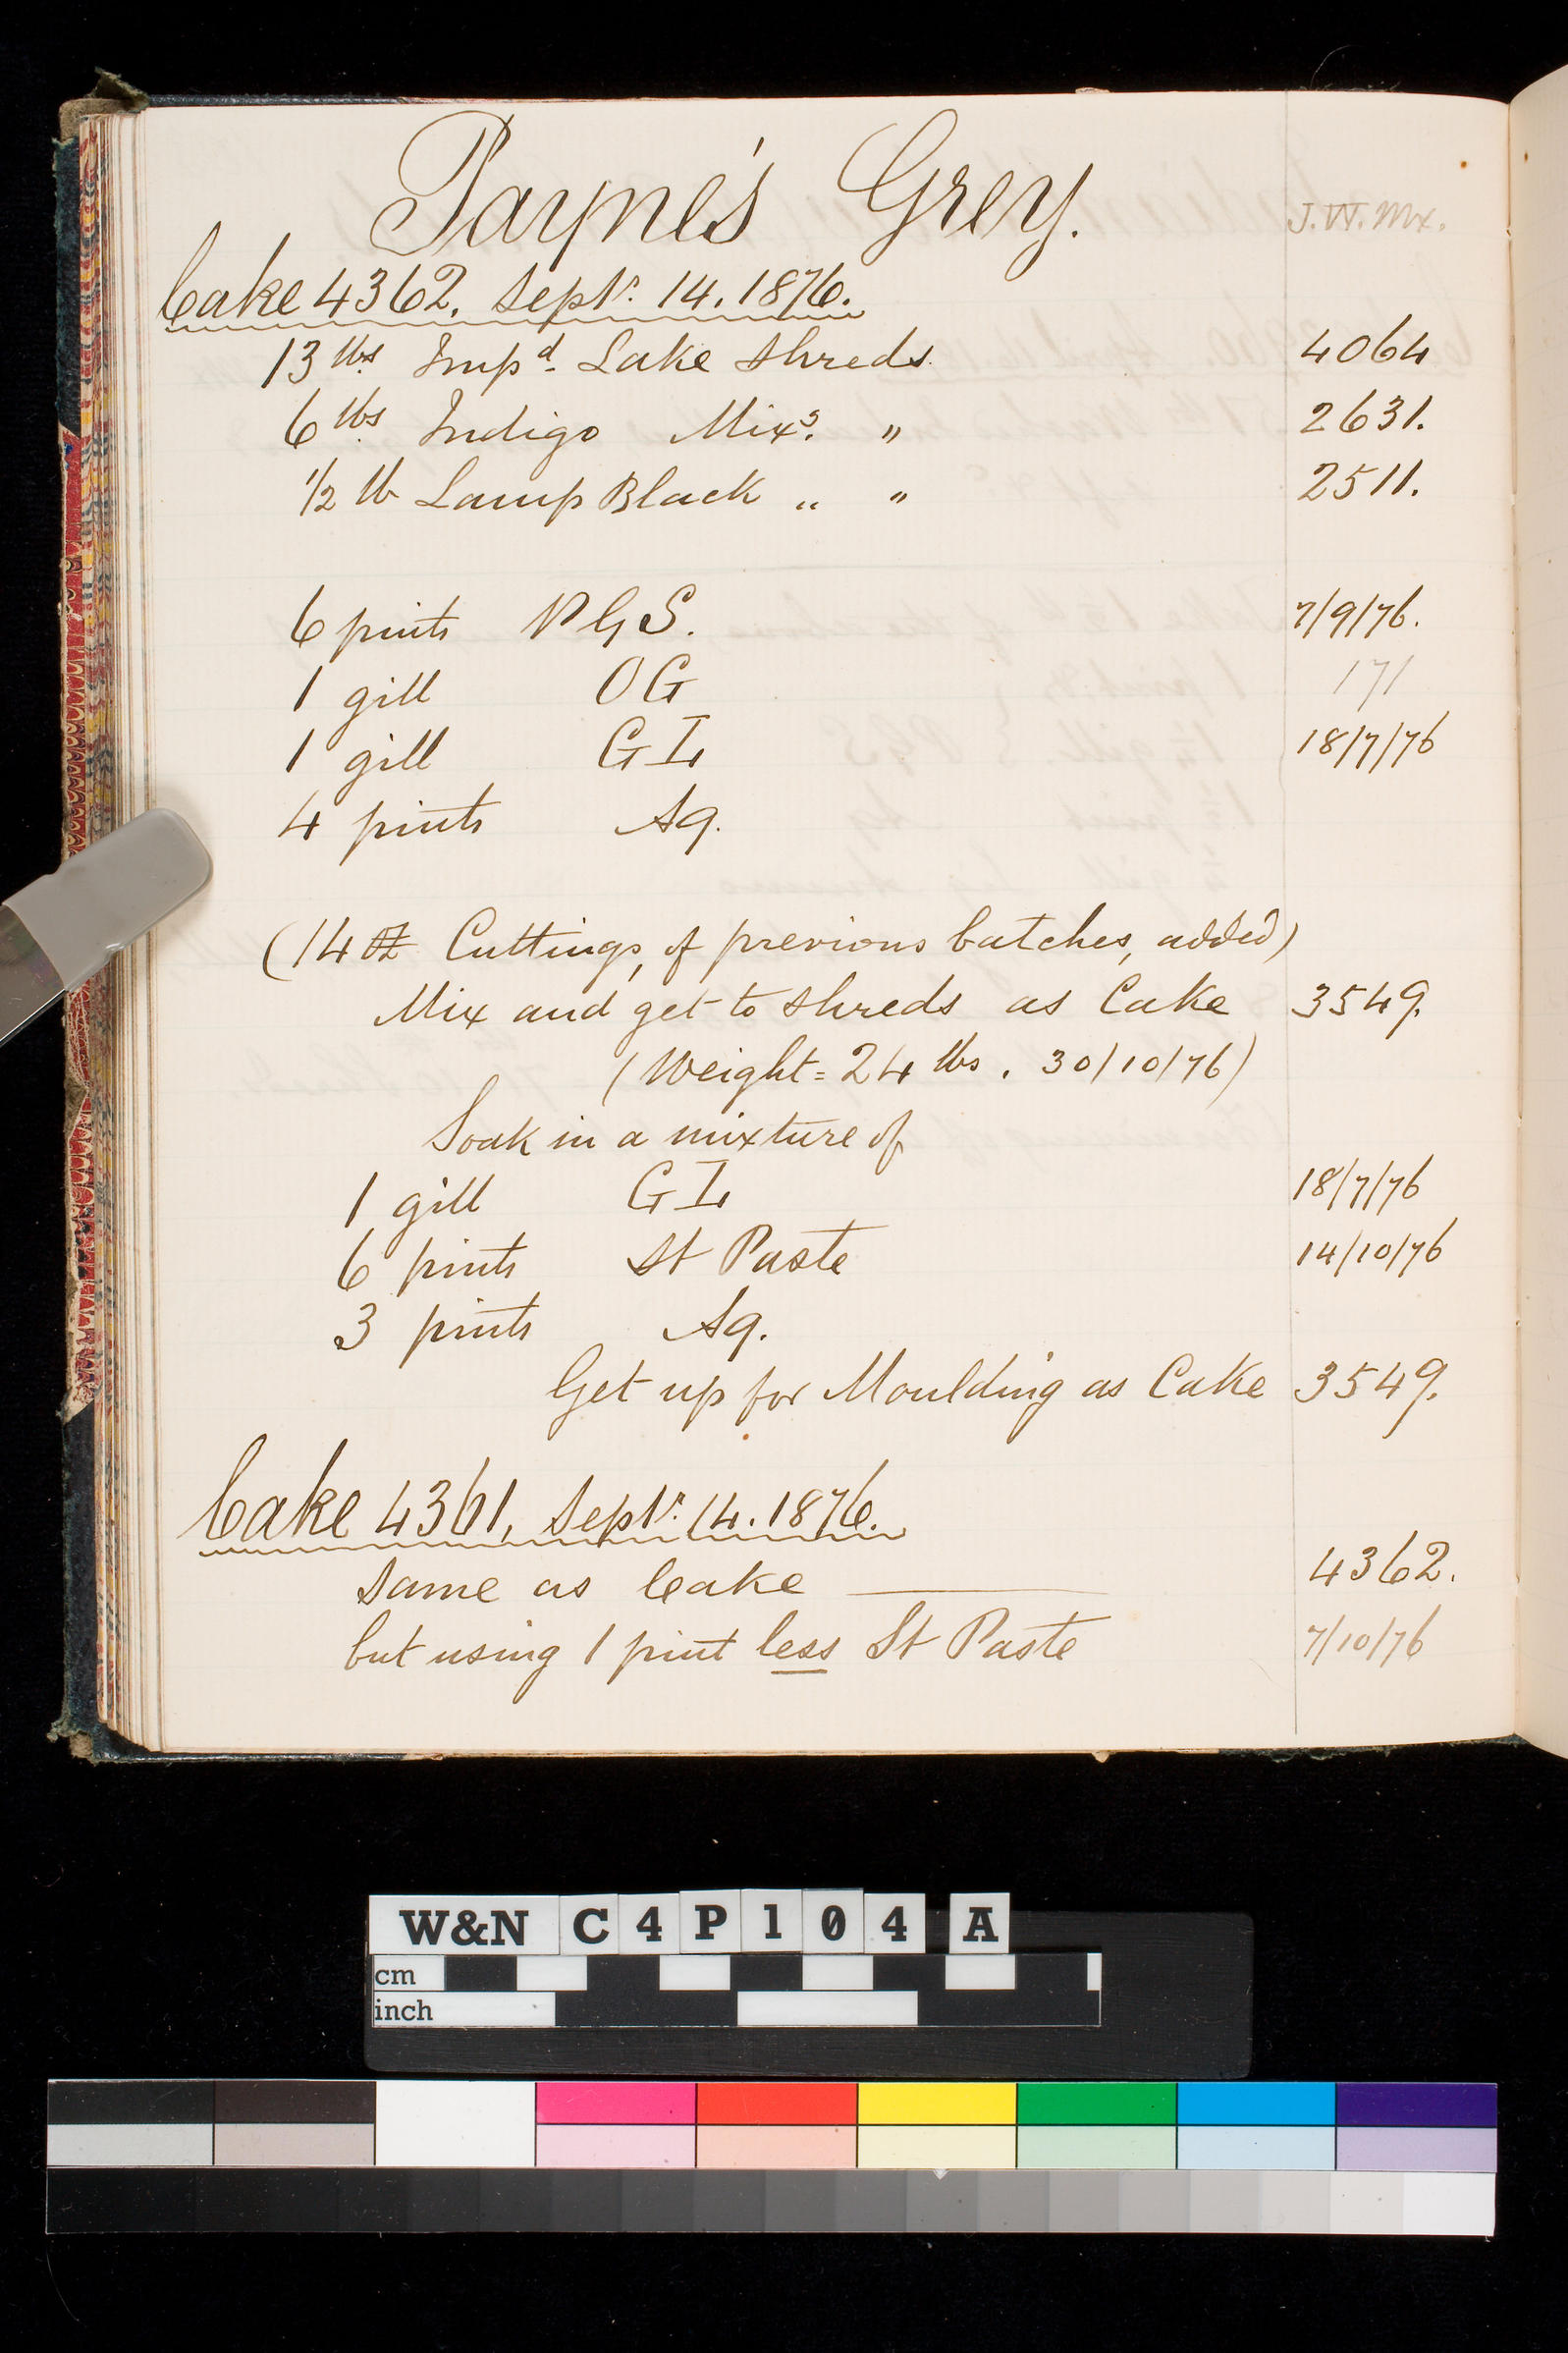 Payne's Grey.
J. W. Mx.
Cake 4362. Sept^r. 14. 1876.
13 lbs Imp^d. Lake Shreds. 4064
6 lbs Indigo Mix^s. " 2631.
1/2 lb Lamp Black " " 2511.
6 pints PGS. 7/9/76.
1 gill OG 171
1 gill GL 18/7/76
4 pints Aq.
(14 oz Cuttings, of previous batches, added)
Mix and get to shreds as Cake 3549.
(Weight = 24 lbs. 30/10/76)
Soak in a mixture of
1 gill GL 18/7/76
6 pints St Paste 14/10/76
3 pints Aq.
Get up for Moulding as Cake 3549.
Cake 4361, Sept^r. 14. 1876.
Same as Cake — 4362.
but using 1 pint less St Paste 7/10/76
W&N C4P104 A
cm
inch